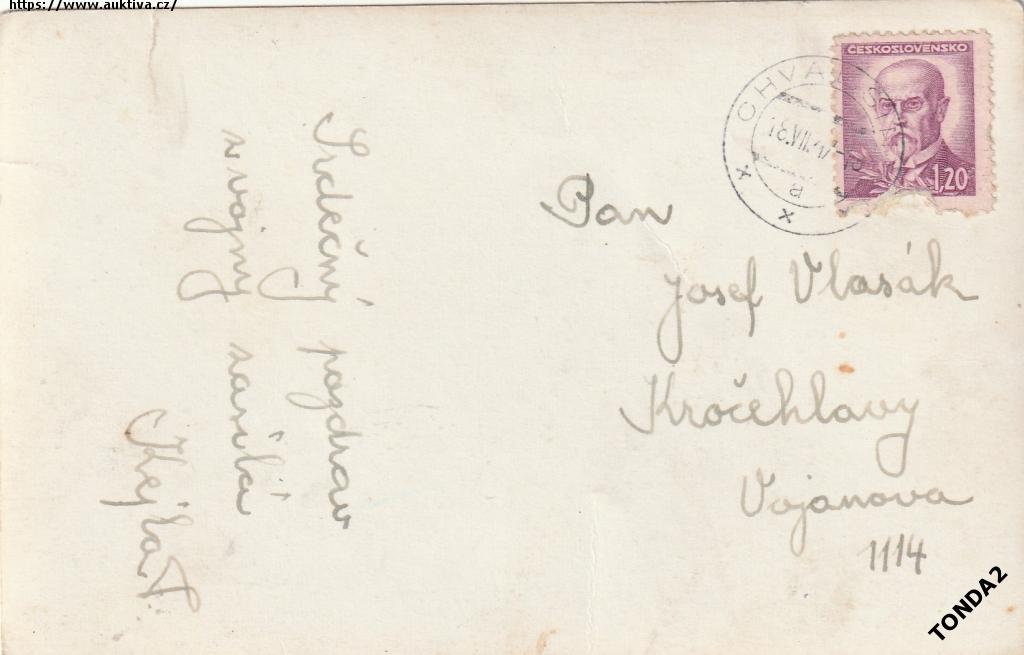 https://www.auktiva.cz/
Srdečný pozdrav
z vojny zasílá
Kejla
ČESKOSLOVENSKO
1,20
Pan
Josef Vlasák
Kročehlavy
Vojanova
1114
TONDA2